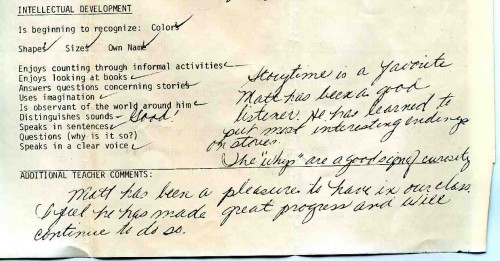 INTELLECTUAL DEVELOPMENT
Is beginning to recognize: Colors
Shapes Sizes Own Name
Enjoys counting through informal activities
Enjoys looking at books
Answers questions concerning stories
Uses imagination
Is observant of the world around him
Distinguishes sounds - Good!
Speaks in sentences
Questions (why is it so?)
Speaks in a clear voice
Storytime is a favorite
Matt has been a good
listener. He has learned to
put most interesting endings
on stories.
The "whys" are a good sign of curiosity
ADDITIONAL TEACHER COMMENTS:
Matt has been a pleasure to have in our class.
I feel he has made great progress and will
continue to do so.